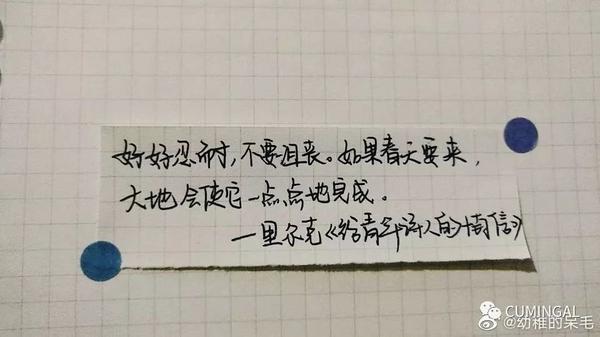 好好忍耐,不要沮丧。如果春天要来,
大地会使它一点点地完成。
—里尔克《给青年诗人的十封信》
CUMINGAL
@幼稚的呆毛